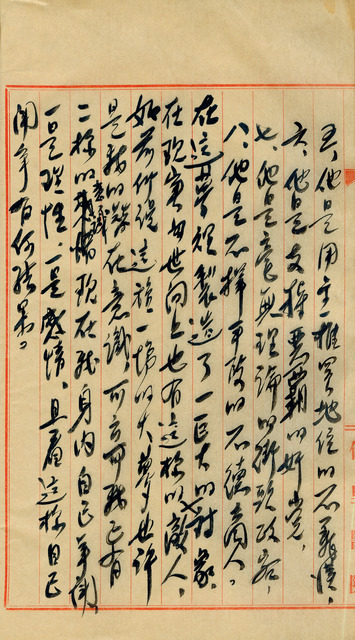 五、他是用主權買地位的不義漢。
六、他是支持惡霸的奸黨。
七、他是毫無理論的街頭政客。
八、他是不擇手段的不德商人。
在這夢裡製造了一巨大的對象。
在現實的世間上也有這樣的敵人。
如若什 這 一場的大夢也許
是我的 在意識，可言即我正有
二樣的意識現在我身內自己爭鬪，
一是理性，一是感情，且看這樣自己
鬪爭有何結果。